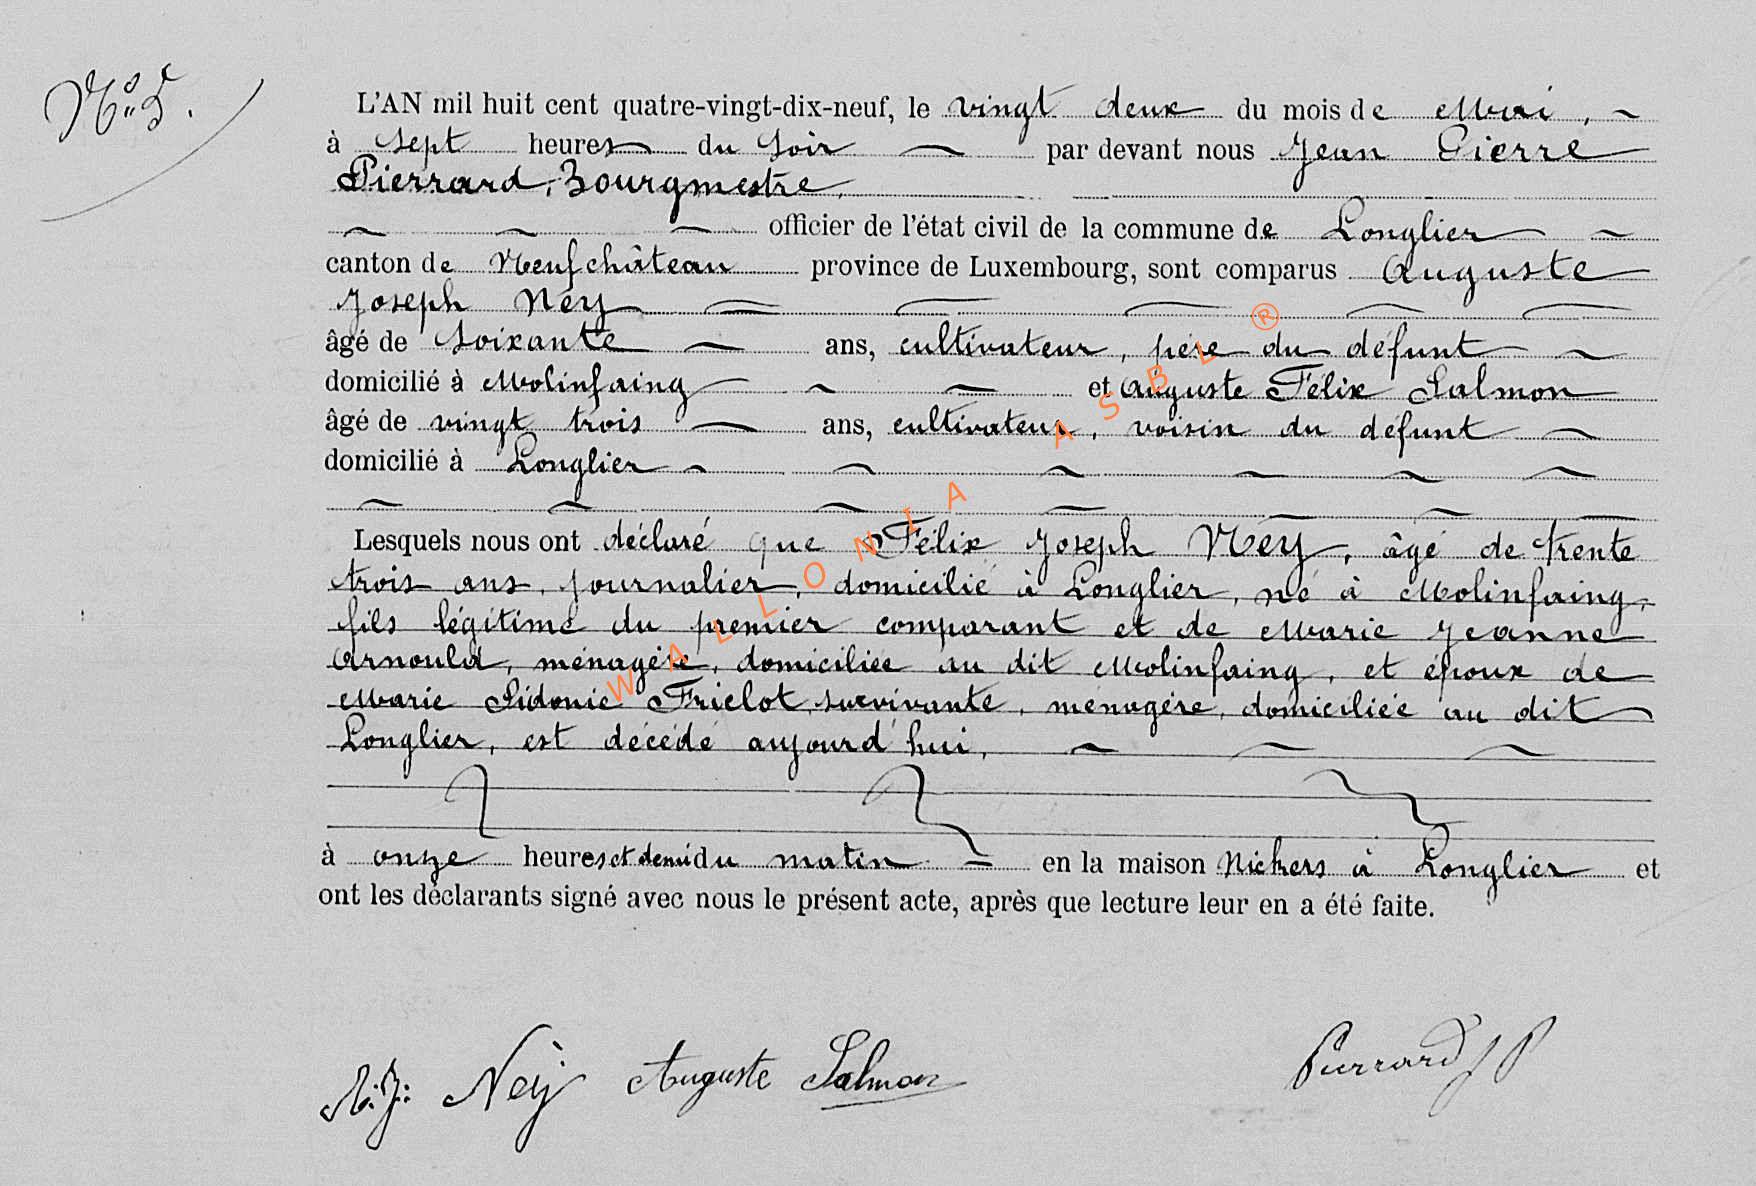 N° 5.
L'AN mil huit cent quatre-vingt-dix-neuf, le vingt deux du mois de Mai,
à sept heures du soir par devant nous Jean Pierre
Pierrard, Bourgmestre,
officier de l'état civil de la commune de Longlier
canton de Neufchâteau province de Luxembourg, sont comparus Auguste
Joseph Néy
âgé de soixante ans, cultivateur, père du défunt
domicilié à Molinfaing et Auguste Félix Salmon
âgé de vingt trois ans, cultivateur, voisin du défunt
domicilié à Longlier
Lesquels nous ont déclaré que Félix Joseph Néy, âgé de trente
trois ans, journalier, domicilié à Longlier, né à Molinfaing,
fils légitime du premier comparant et de Marie Jeanne
Arnould, ménagère, domiciliée au dit Molinfaing, et époux de
Marie Sidonie Frielot, survivante, ménagère, domiciliée au dit
Longlier, est décédé aujourd'hui,
à onze heures et demi du matin en la maison Nickers à Longlier et
ont les déclarants signé avec nous le présent acte, après que lecture leur en a été faite.
Néy Auguste Salmon Pierrard J P
WALLONIA ASBL ®